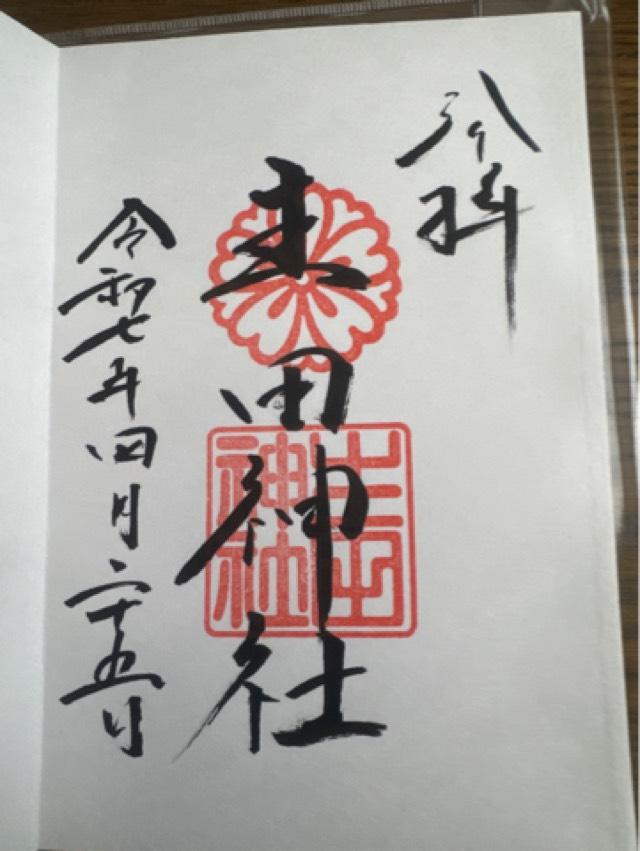 奉拝
生田神社
令和七年四月二十五日
生田
神社